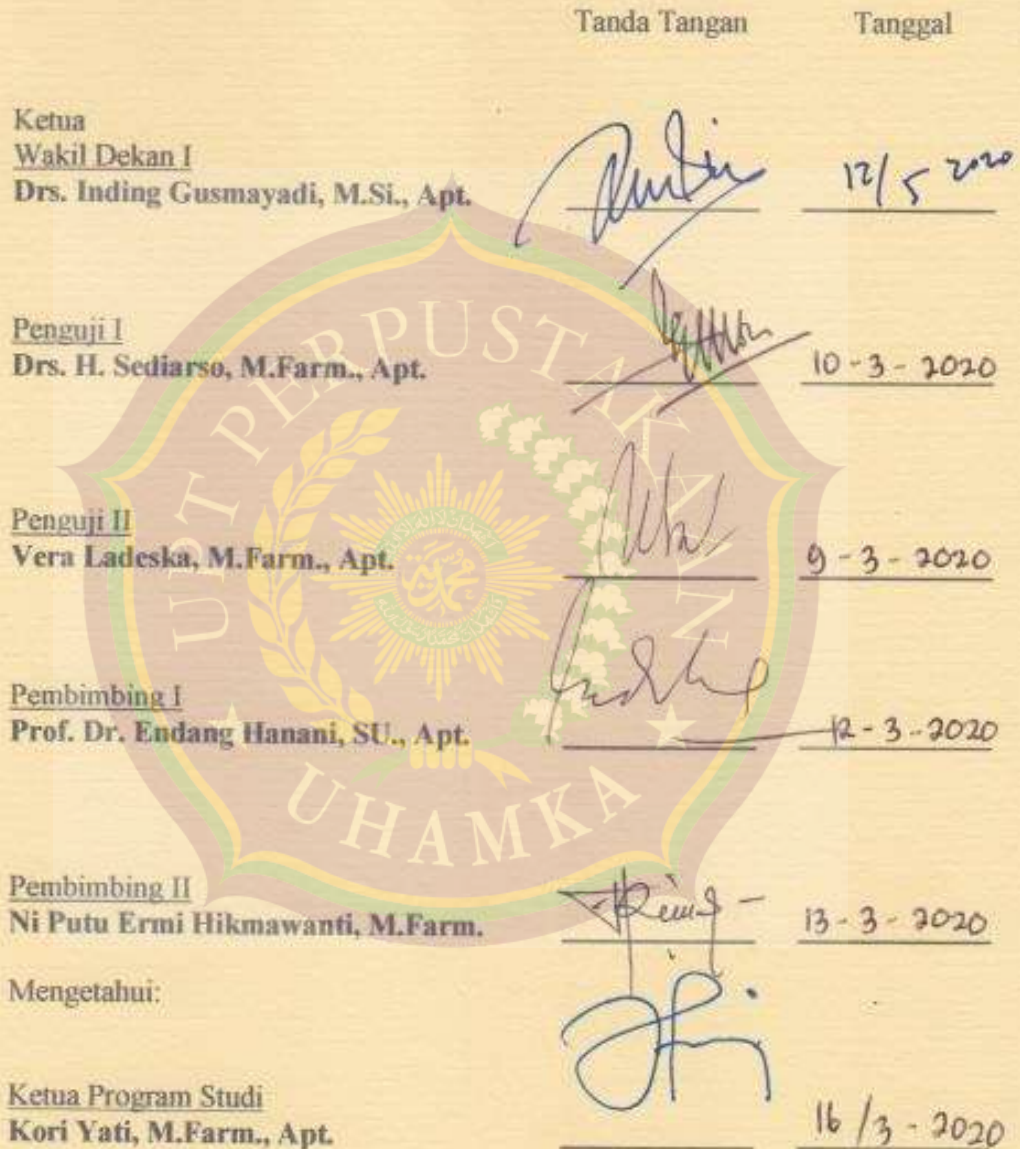 Tanda Tangan Tanggal
Ketua
Wakil Dekan I
Drs. Inding Gusmayadi, M.Si., Apt. 12/5 2020
Penguji I
Drs. H. Sediarso, M.Farm., Apt. 10-3-2020
Penguji II
Vera Ladeska, M.Farm., Apt. 9-3-2020
Pembimbing I
Prof. Dr. Endang Hanani, SU., Apt. 12-3-2020
Pembimbing II
Ni Putu Ermi Hikmawanti, M.Farm. 13-3-2020
Mengetahui:
Ketua Program Studi
Kori Yati, M.Farm., Apt. 16/3-2020
UPT PERPUSTAKAAN
UHAMKA